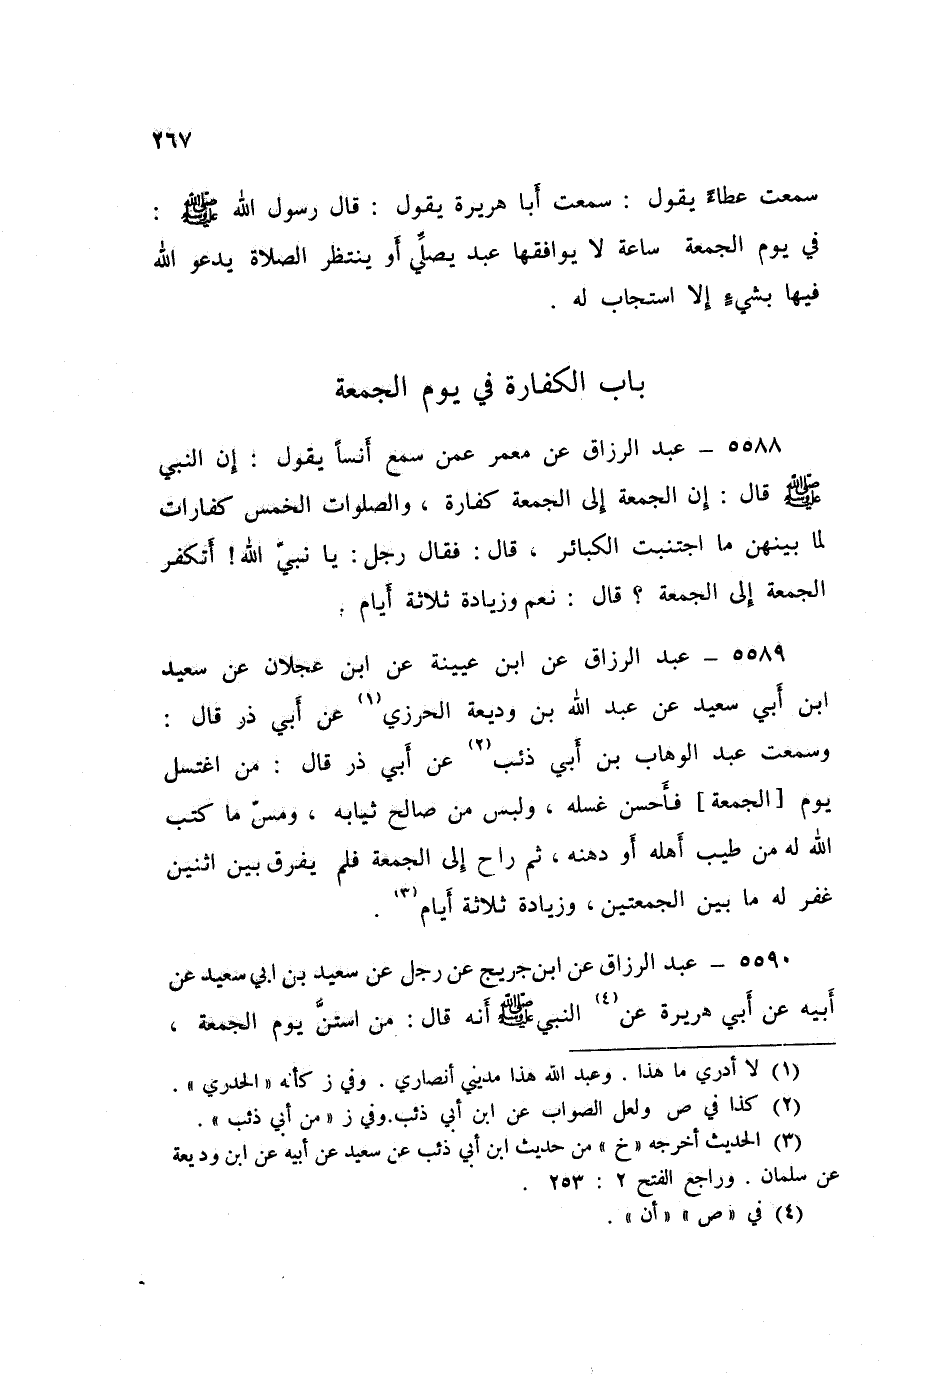 ٢٦٧
سمعت عطاءً يقول : سمعت أبا هريرة يقول : قال رسول الله ﷺ :
في يوم الجمعة ساعة لا يوافقها عبد يصلِّي أو ينتظر الصلاة يدعو الله
فيها بشيءٍ إلا استجاب له .
باب الكفارة في يوم الجمعة
٥٥٨٨ – عبد الرزاق عن معمر عمن سمع أنساً يقول : إن النبي
ﷺ قال : إن الجمعة إلى الجمعة كفارة ، والصلوات الخمس كفارات
لما بينهن ما اجتنبت الكبائر ، قال : فقال رجل : يا نبيّ الله ! أتكفر
الجمعة إلى الجمعة ؟ قال : نعم وزيادة ثلاثة أيام .
٥٥٨٩ – عبد الرزاق عن ابن عيينة عن ابن عجلان عن سعيد
ابن أبي سعيد عن عبد الله بن وديعة الحرزي(١) عن أبي ذر قال :
وسمعت عبد الوهاب بن أبي ذئب(٢) عن أبي ذر قال : من اغتسل
يوم [الجمعة] فأحسن غسله ، ولبس من صالح ثيابه ، ومسّ ما كتب
الله له من طيب أهله أو دهنه ، ثم راح إلى الجمعة فلم يفرق بين اثنين
غفر له ما بين الجمعتين ، وزيادة ثلاثة أيام(٣) .
٥٥٩٠ – عبد الرزاق عن ابن جريج عن رجل عن سعيد بن ابي سعيد عن
أبيه عن أبي هريرة عن(٤) النبي ﷺ أنه قال : من استنَّ يوم الجمعة ،
(١) لا أدري ما هذا . وعبد الله هذا مديني أنصاري . وفي ز كأنه « الخدري » .
(٢) كذا في ص ولعل الصواب عن ابن أبي ذئب.وفي ز « من أبي ذئب » .
(٣) الحديث أخرجه « خ » من حديث ابن أبي ذئب عن سعيد عن أبيه عن ابن وديعة
عن سلمان . وراجع الفتح ٢ : ٢٥٣ .
(٤) في « ص » « أن » .